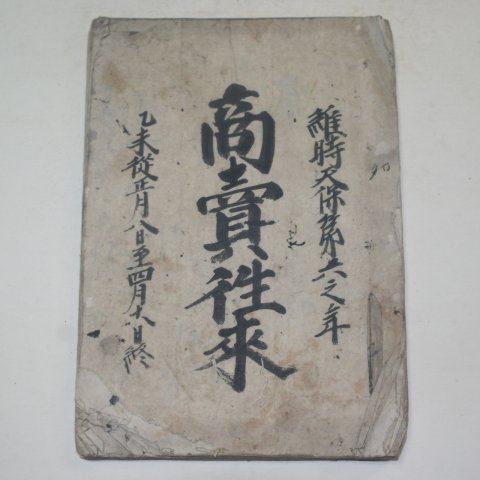 維時天保第六之年
商賣徃來
乙未從正月八日至四月十八日終